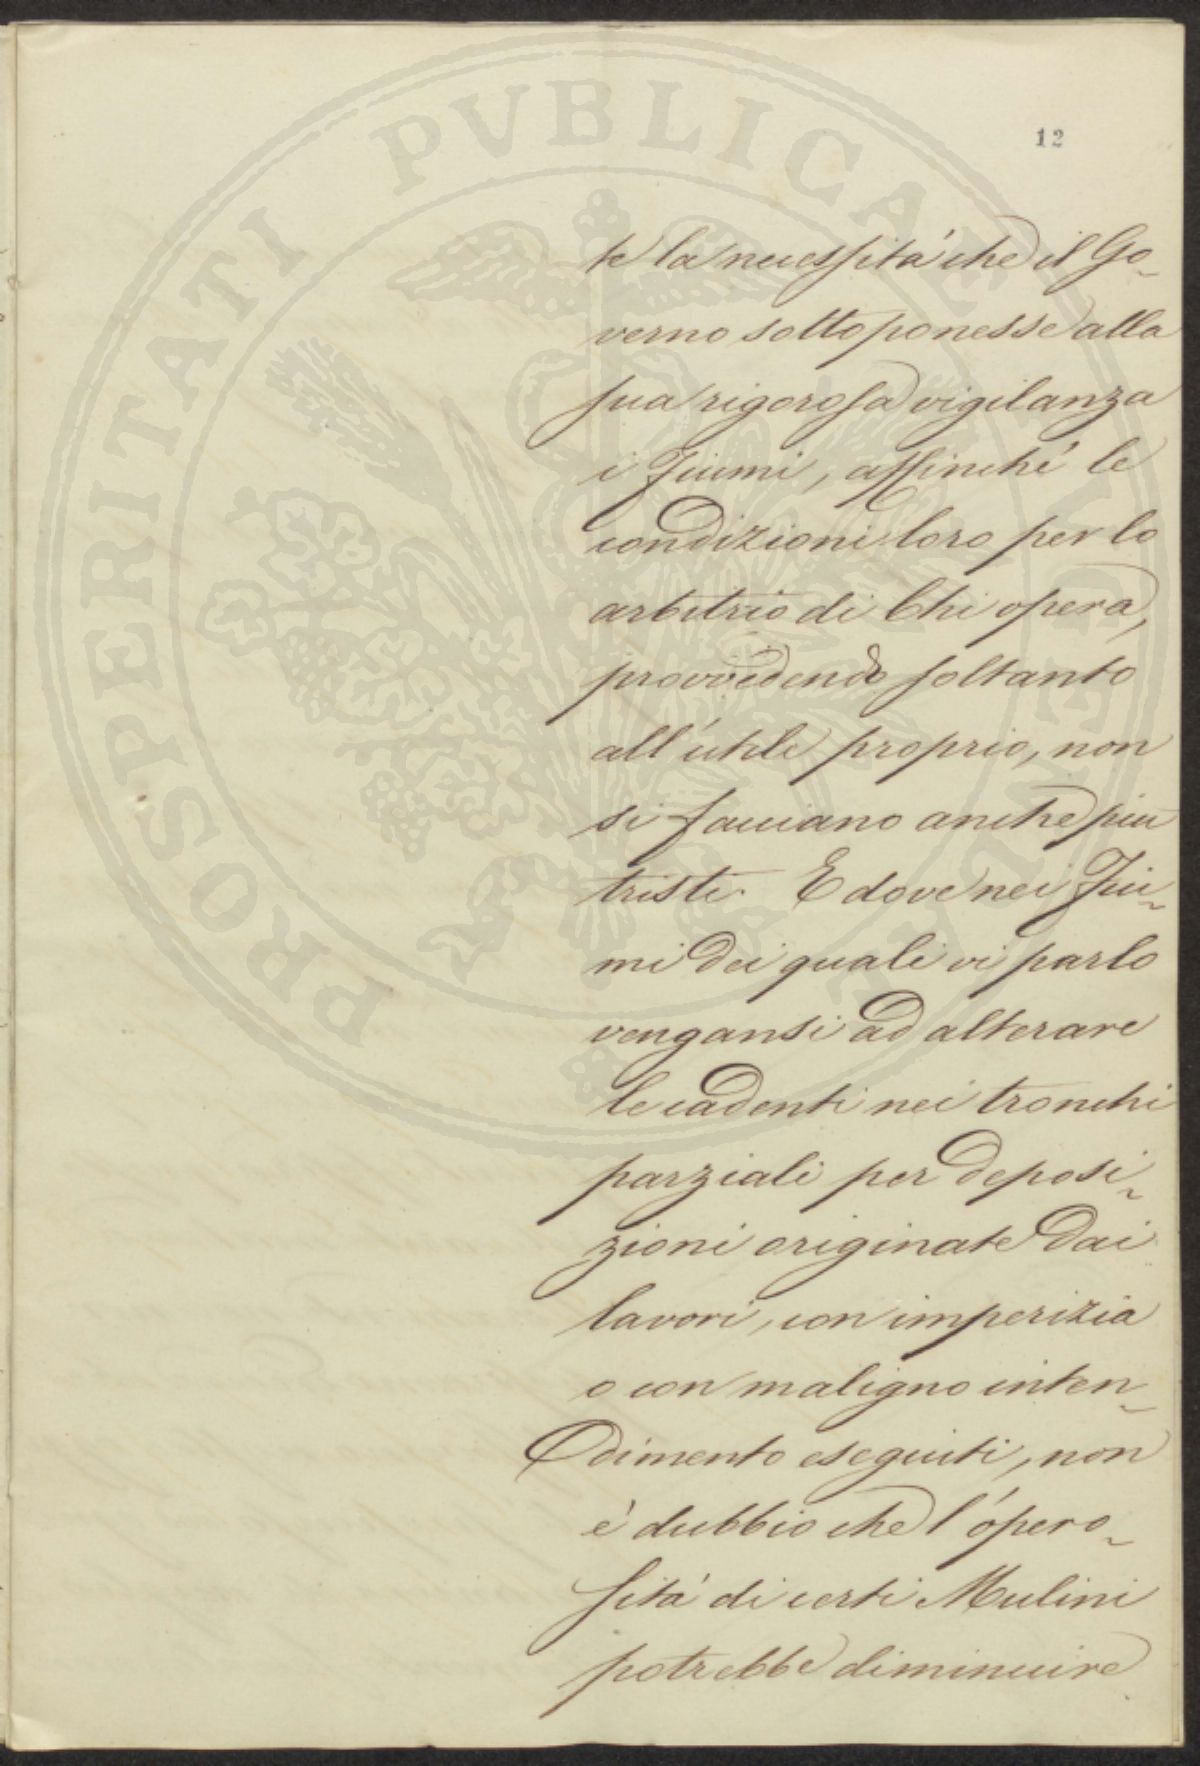 PROSPERITATI PVBLICAE AVGENDAE
12
te la necessità che il Go-
verno sottoponesse alla
sua rigorosa vigilanza
i Fiumi, affinchè le
condizioni loro per lo
arbitrio di Chi opera,
provvedendo soltanto
all'utile proprio, non
si facciano anche più
triste. E dove nei Fiu-
mi dei quali vi parlo
vengansi ad alterare
le cadenti nei tronchi
parziali per deposi-
zioni originate dai
lavori, con imperizia
o con maligno inten-
dimento eseguiti, non
è dubbio che l'opero-
sità di certi Mulini
potrebbe diminuire